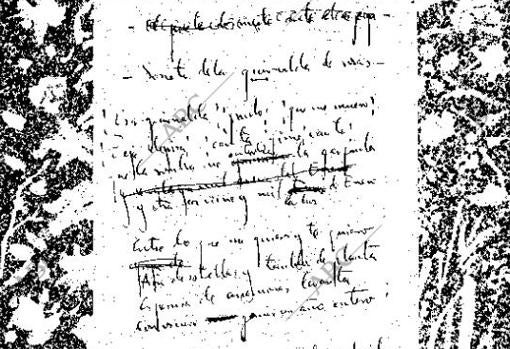 - Soneto de la guirnalda de rosas -
¡Esa guirnalda! ¡pronto! ¡que me muero!
¡Teje deprisa! ¡canta! ¡gime! ¡canta!
que la sombra me enturbia la garganta
y otra vez viene y mil la luz de Enero
Entre lo que me quieres y te quiero
Aire de estrellas y temblor de planta
Espesura de anemonas levanta
con oscuro gemir un año entero
ABC
ABC